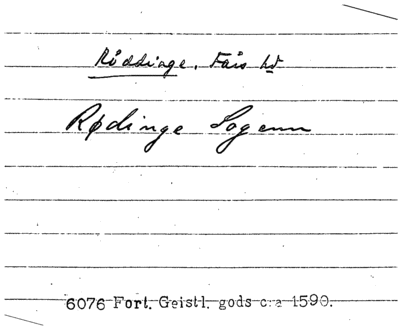 Röddinge, Färs hd
Rødinge Sogenn
6076 Fort. Geistl. gods c:a 1590.